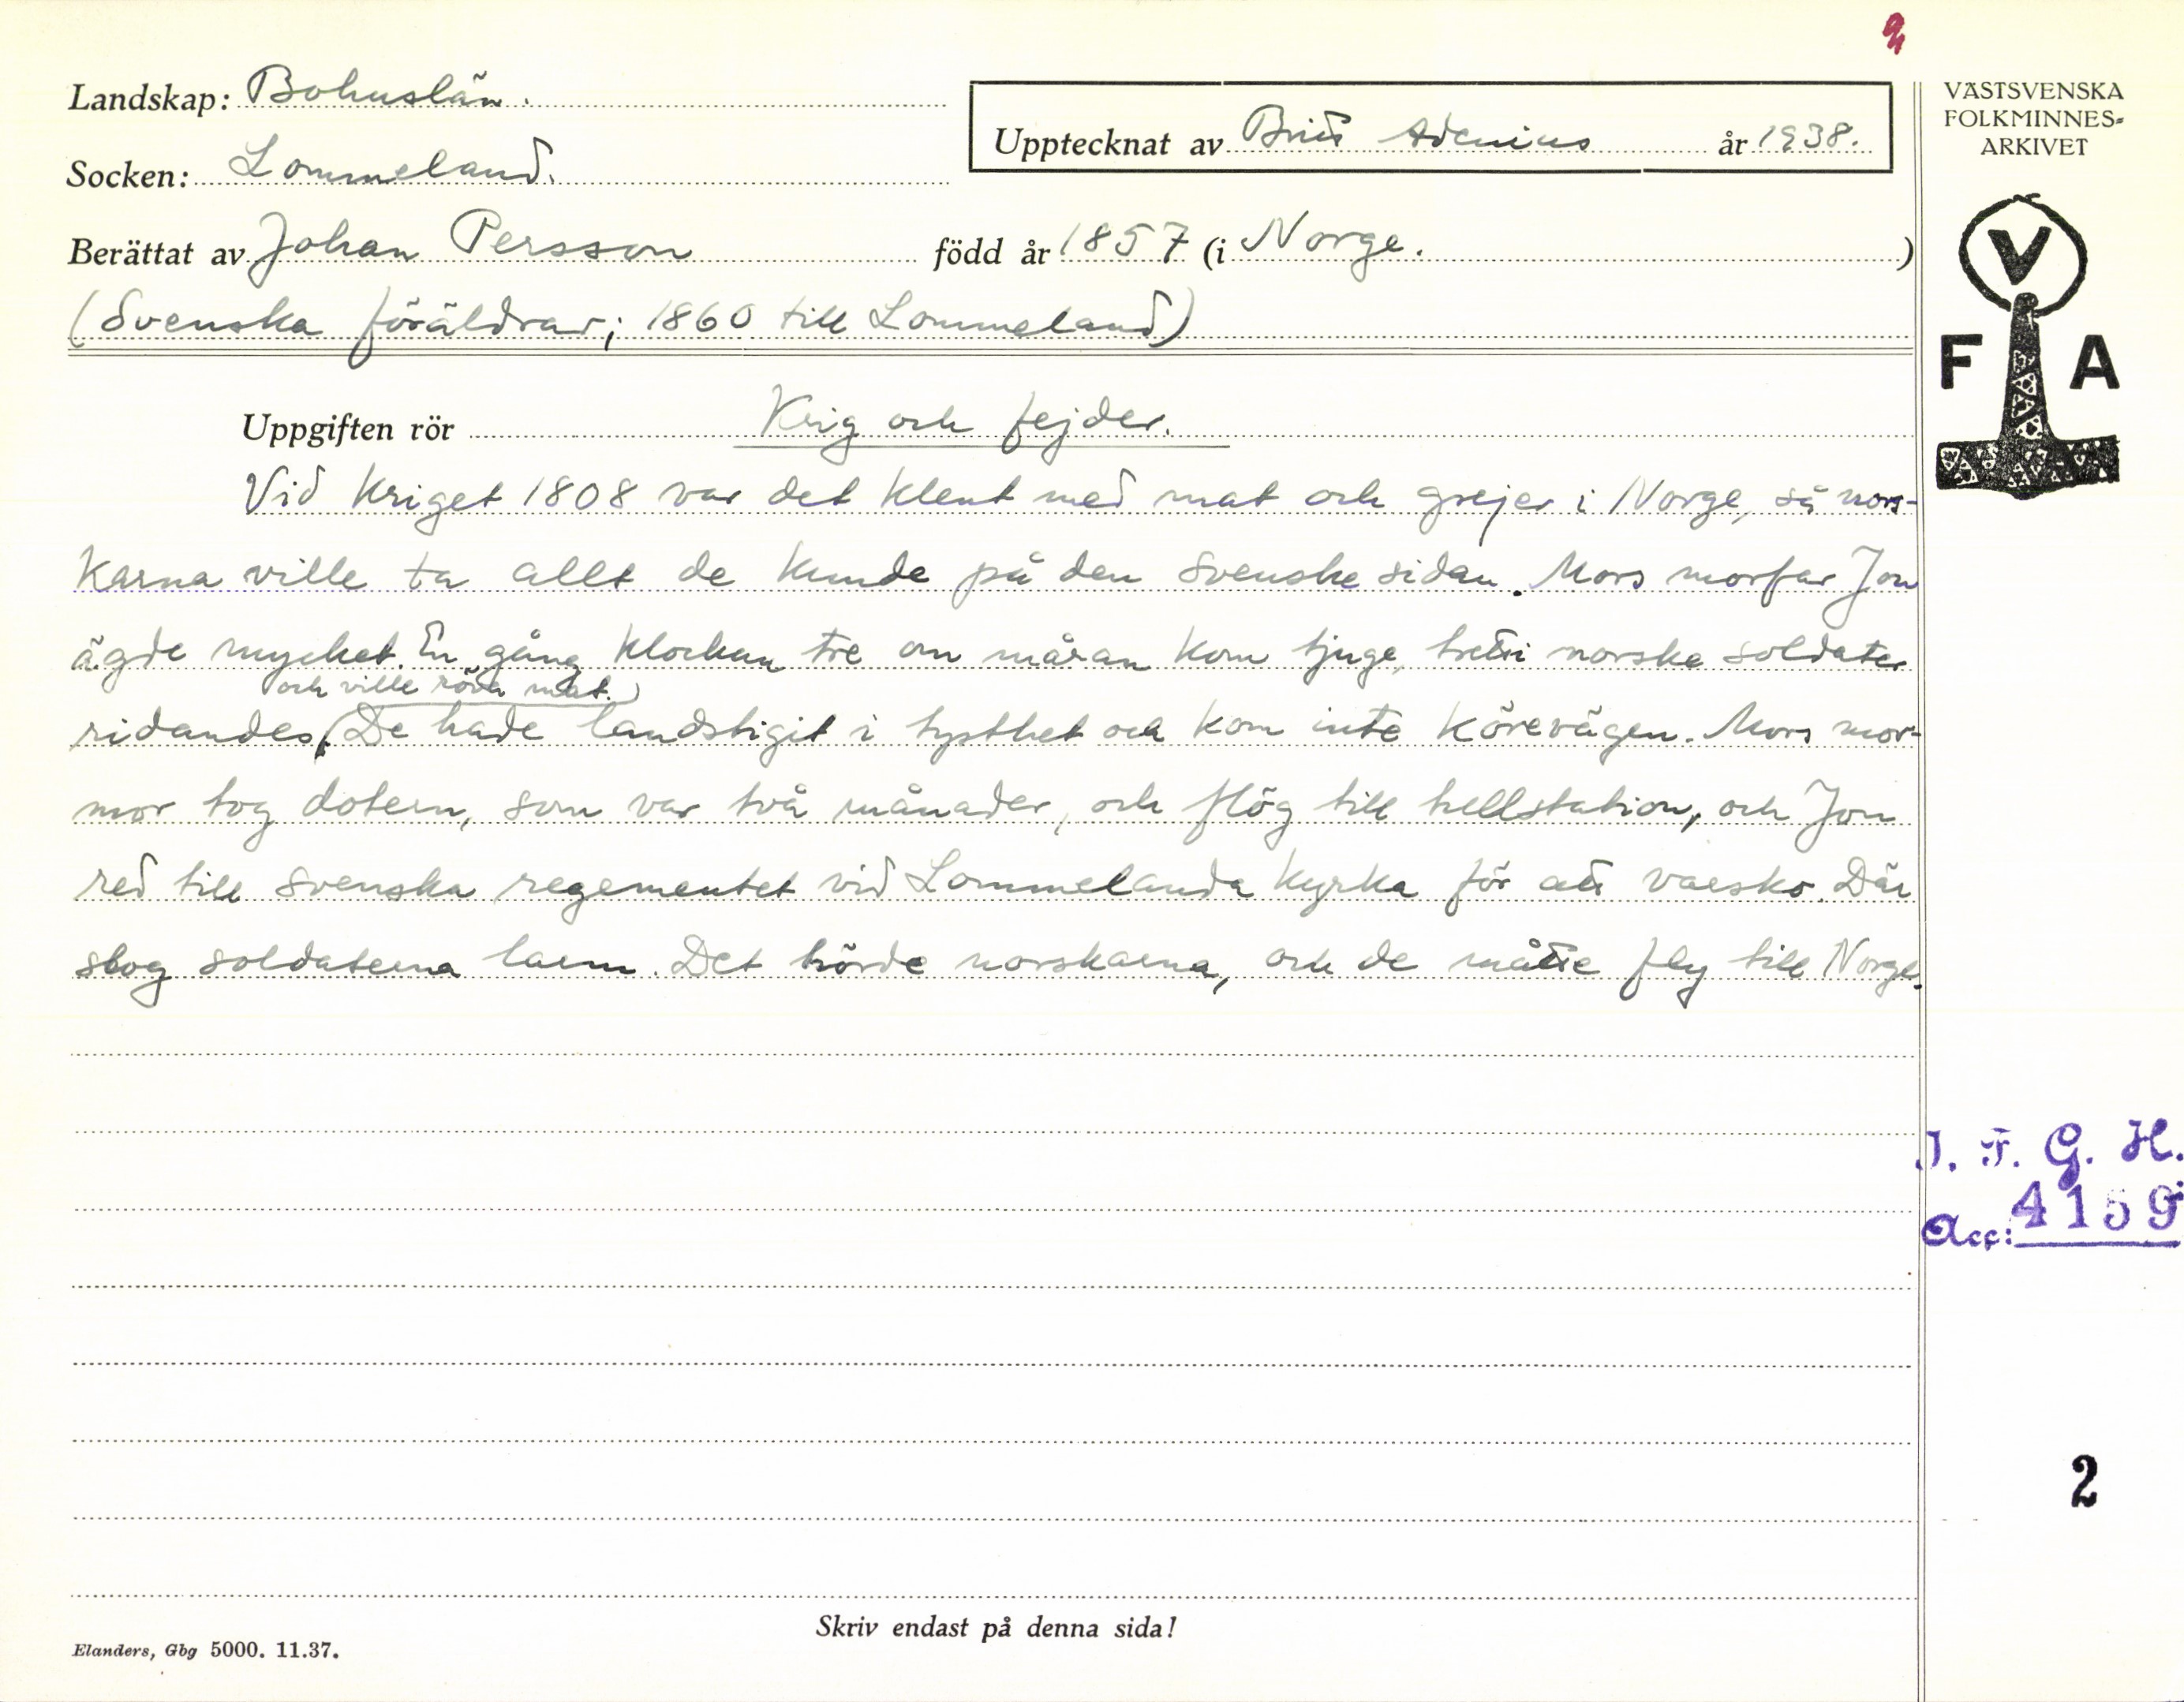 Landskap: Bohuslän.
Socken: Lommeland.
Upptecknat av Britt Adenius år 1938.
Berättat av Johan Persson född år 1857 (i Norge.)
(Svenska föräldrar; 1860 till Lommeland)
Uppgiften rör Krig och fejder.
Vid kriget 1808 var det klent med mat och grejer i Norge, så nors-
karna ville ta allt de kunde på den svenske sidan. Mors morfar Jon
ägde mycket. En gång klockan tre om måran kom tjuge, tretti norske soldater
och ville röva mat.
ridandes, De hade landstigit i tysthet och kom inte körevägen. Mors mor-
mor tog dotern, som var två månader, och flög till hellstation, och Jon
red till svenska regementet vid Lommelanda kyrka för att varsko. Där
slog soldaterna larm. Det hörde norskarna, och de måtte fly till Norge.
Skriv endast på denna sida!
Elanders, Gbg 5000. 11.37.
VÄSTSVENSKA
FOLKMINNES-
ARKIVET
V
F A
I. F. G. H.
Acc: 4159
2